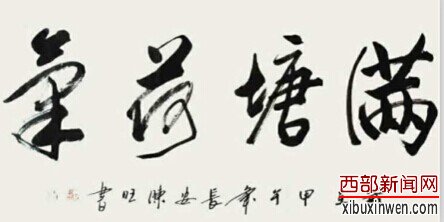 滿塘荷氣
甲午年長安陳旺書
西部新闻网
xibuxinwen.com